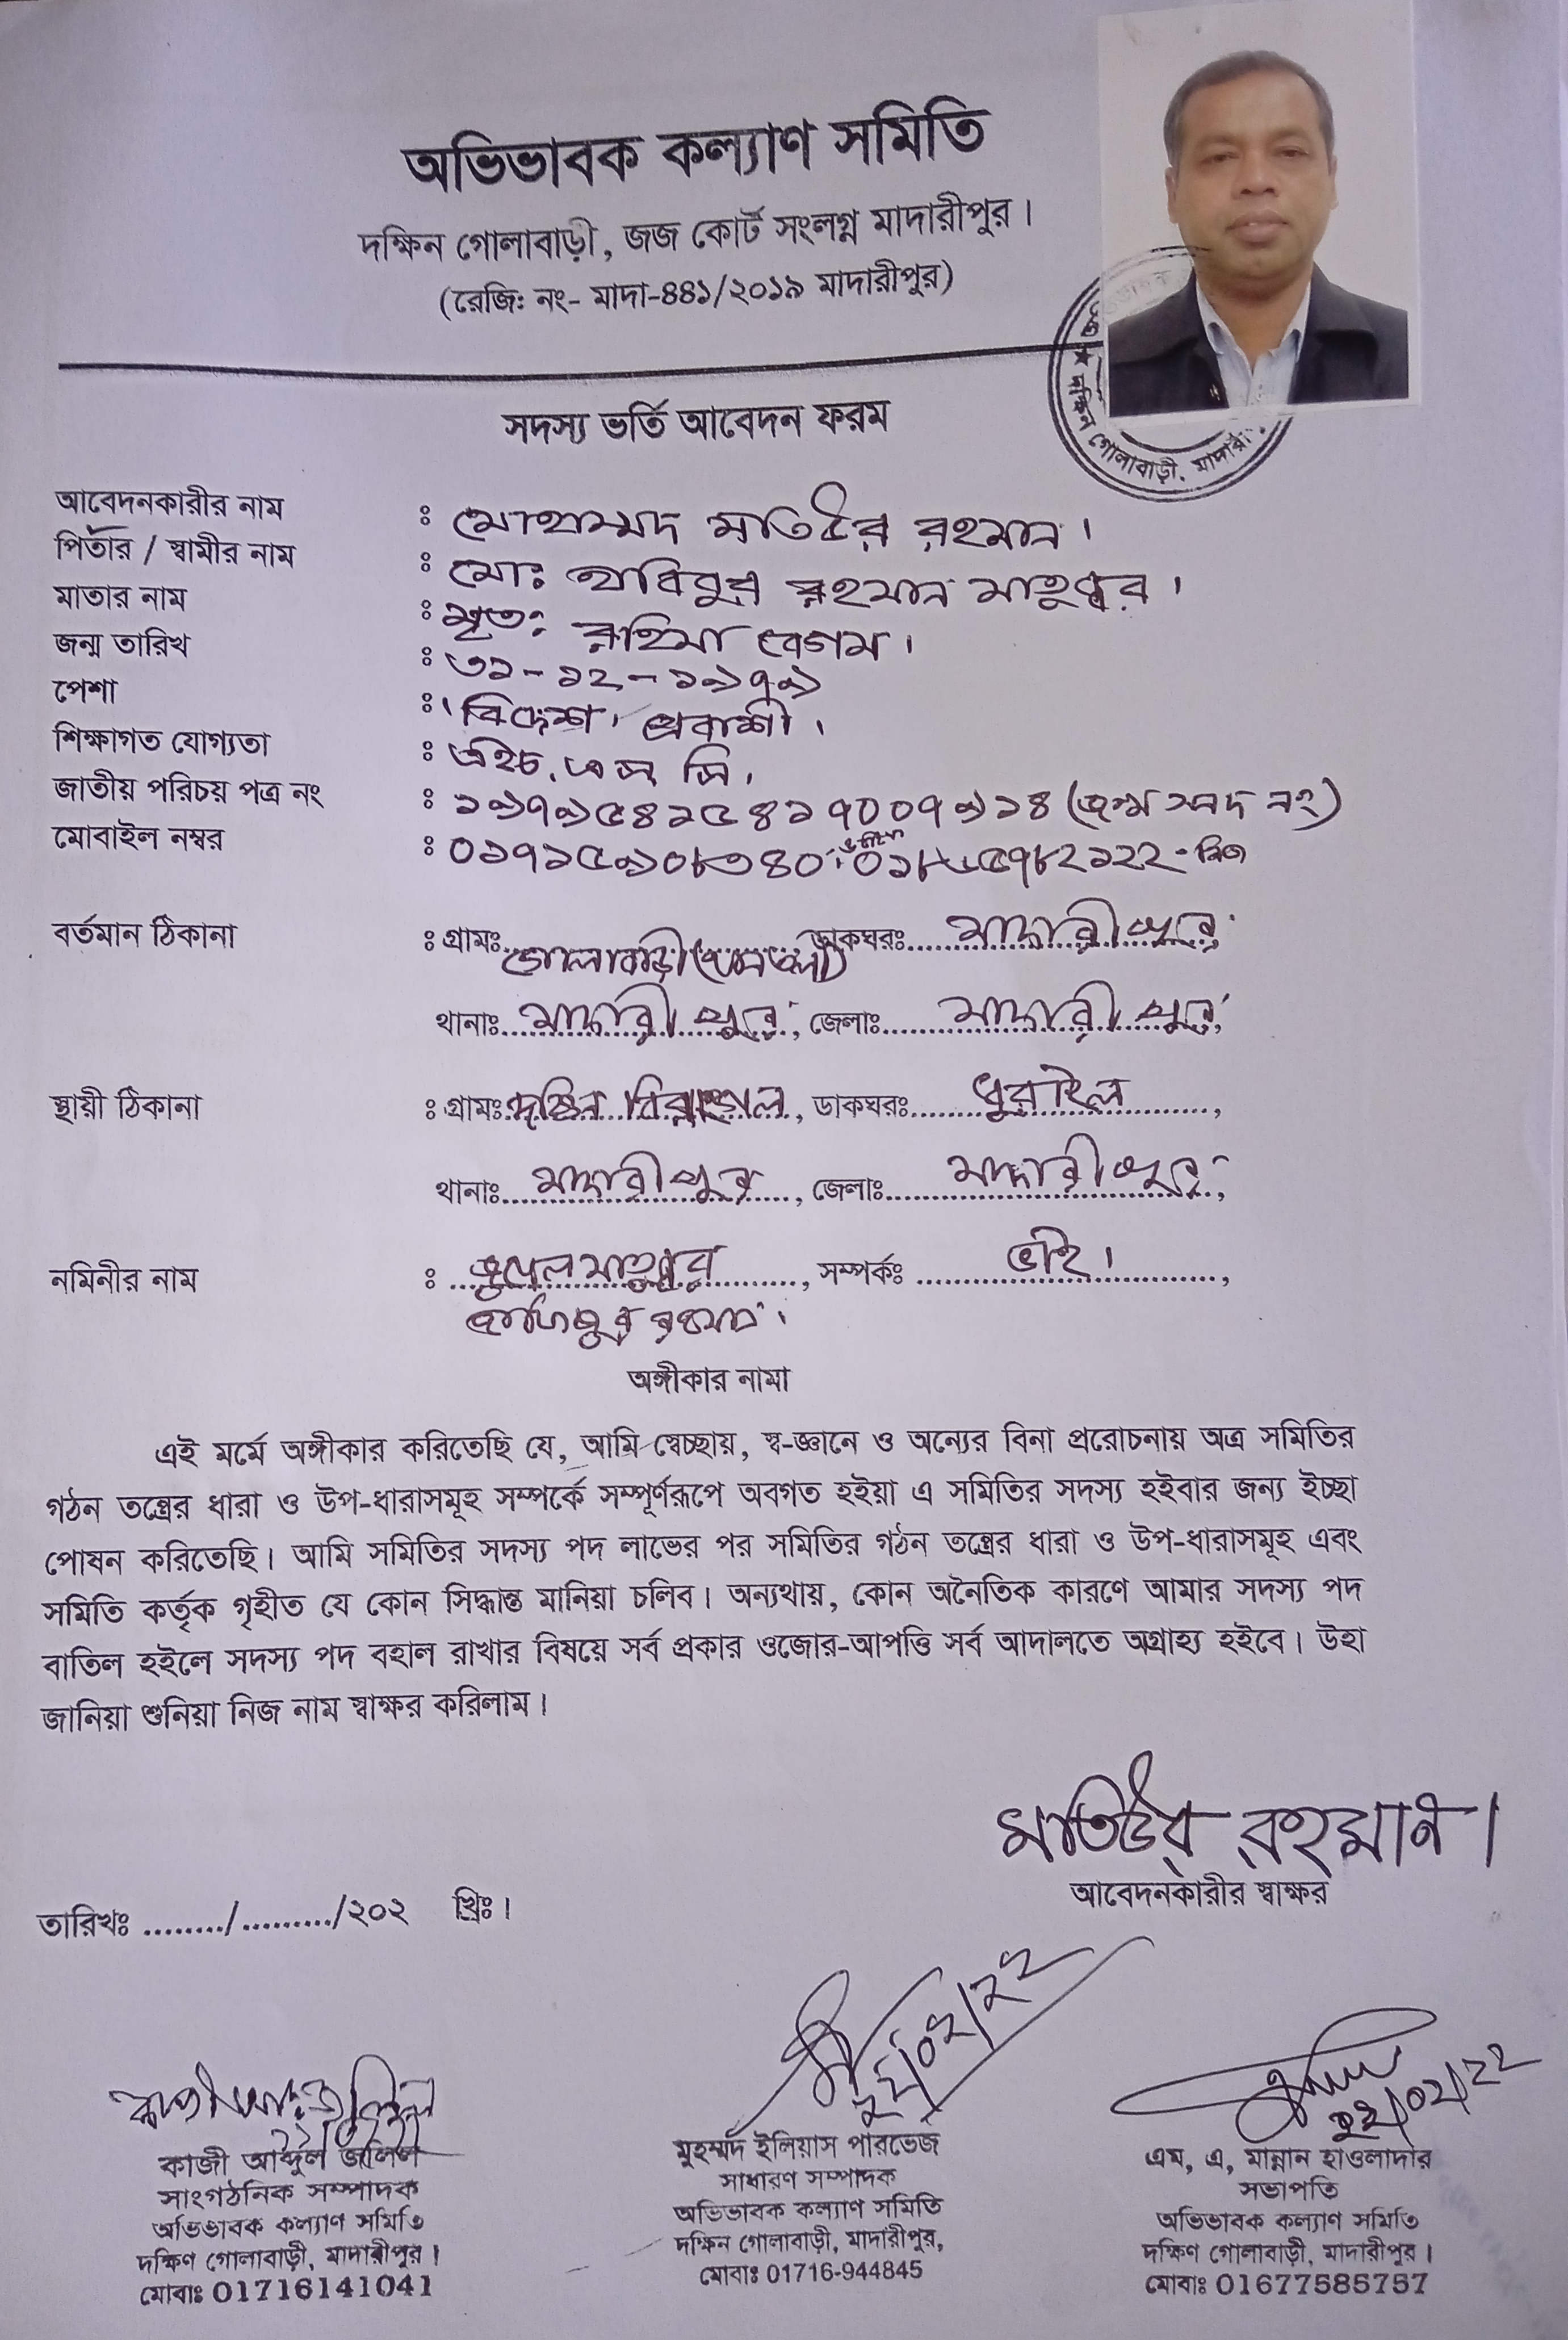 অভিভাবক কল্যাণ সমিতি
দক্ষিন গোলাবাড়ী, জজ কোর্ট সংলগ্ন মাদারীপুর।
(রেজিঃ নং- মাদা-৪৪১/২০১৯ মাদারীপুর)
দক্ষিন গোলাবাড়ী. মাদারী
সদস্য ভর্তি আবেদন ফরম
আবেদনকারীর নাম : মোহাম্মদ মতিউর রহমান।
পিতার / স্বামীর নাম : মোঃ হাবিবুর রহমান মাতুব্বর।
মাতার নাম : মৃতঃ রহিমা বেগম।
জন্ম তারিখ : ৩১-১২-১৯৭৯
পেশা : বিদেশ প্রবাশী।
শিক্ষাগত যোগ্যতা : এইচ.এস সি.
জাতীয় পরিচয় পত্র নং : ১৯৭৯৫৪১৫৪১৭০০৭৯১৪ (জন্ম সনদ নং)
মোবাইল নম্বর : ০১৭১৫৯০৮৩৪০ ০১৮৬৫৭৮২১২২ - নিজ
বর্তমান ঠিকানা : গ্রামঃ গোলাবাড়ী ডাকঘরঃ..... মাদারীপুর,
থানাঃ.. মাদারীপুর, জেলাঃ..... মাদারীপুর,
স্থায়ী ঠিকানা : গ্রামঃ দক্ষিন বিরাঙ্গল, ডাকঘরঃ..... ধুরাইল ....,
থানাঃ.... মাদারীপুর ..., জেলাঃ..... মাদারীপুর,
নমিনীর নাম : মাতুব্বর ......, সম্পর্কঃ ...... ভাই। ......,
রহমান।
অঙ্গীকার নামা
এই মর্মে অঙ্গীকার করিতেছি যে, আমি স্বেচ্ছায়, স্ব-জ্ঞানে ও অন্যের বিনা প্ররোচনায় অত্র সমিতির
গঠন তন্ত্রের ধারা ও উপ-ধারাসমূহ সম্পর্কে সম্পূর্ণরূপে অবগত হইয়া এ সমিতির সদস্য হইবার জন্য ইচ্ছা
পোষন করিতেছি। আমি সমিতির সদস্য পদ লাভের পর সমিতির গঠন তন্ত্রের ধারা ও উপ-ধারাসমূহ এবং
সমিতি কর্তৃক গৃহীত যে কোন সিদ্ধান্ত মানিয়া চলিব। অন্যথায়, কোন অনৈতিক কারণে আমার সদস্য পদ
বাতিল হইলে সদস্য পদ বহাল রাখার বিষয়ে সর্ব প্রকার ওজোর-আপত্তি সর্ব আদালতে অগ্রাহ্য হইবে। উহা
জানিয়া শুনিয়া নিজ নাম স্বাক্ষর করিলাম।
মতিউর রহমান।
আবেদনকারীর স্বাক্ষর
তারিখঃ ......../........./২০২ খ্রিঃ।
২২/০২/২২
২২/০২/২২
কাজী আব্দুল জলিল
সাংগঠনিক সম্পাদক
অভিভাবক কল্যাণ সমিতি
দক্ষিণ গোলাবাড়ী, মাদারীপুর।
মোবাঃ 01716141041
মুহম্মদ ইলিয়াস পারভেজ
সাধারণ সম্পাদক
অভিভাবক কল্যাণ সমিতি
দক্ষিন গোলাবাড়ী, মাদারীপুর,
মোবাঃ 01716-944845
এম, এ, মান্নান হাওলাদার
সভাপতি
অভিভাবক কল্যাণ সমিতি
দক্ষিণ গোলাবাড়ী, মাদারীপুর।
মোবাঃ 01677585757